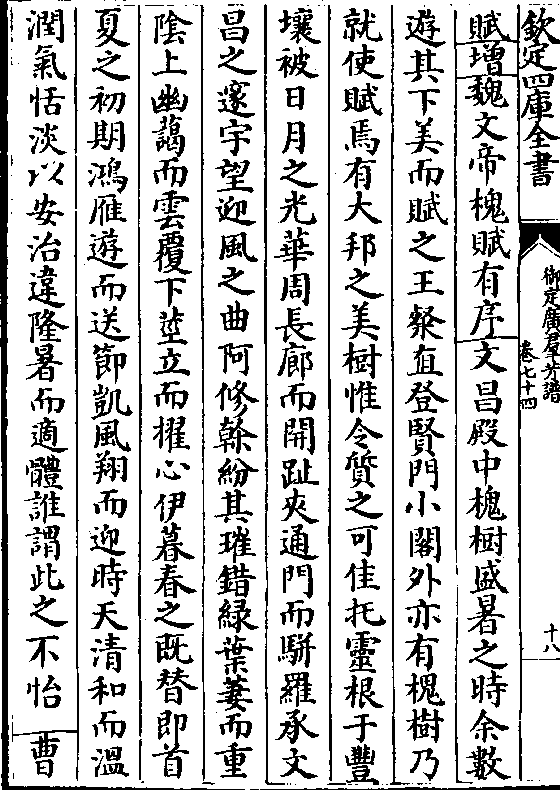 欽定四庫全書
御定廣群芳譜
卷七十四
十八
賦增魏文帝槐賦有序文昌殿中槐樹盛暑之時余數
遊其下美而賦之王粲直登賢門小閣外亦有槐樹乃
就使賦焉有大邦之美樹惟令質之可佳托靈根于豐
壤被日月之光華周長廊而開趾夾通門而駢羅承文
昌之邃宇望迎風之曲阿修榦紛其璀錯綠葉萋而重
陰上幽藹而雲覆下莖立而擢心伊暮春之既替即首
夏之初期鴻雁遊而送節凱風翔而迎時天清和而溫
潤氣恬淡以安治違隆暑而適體誰謂此之不怡 曹